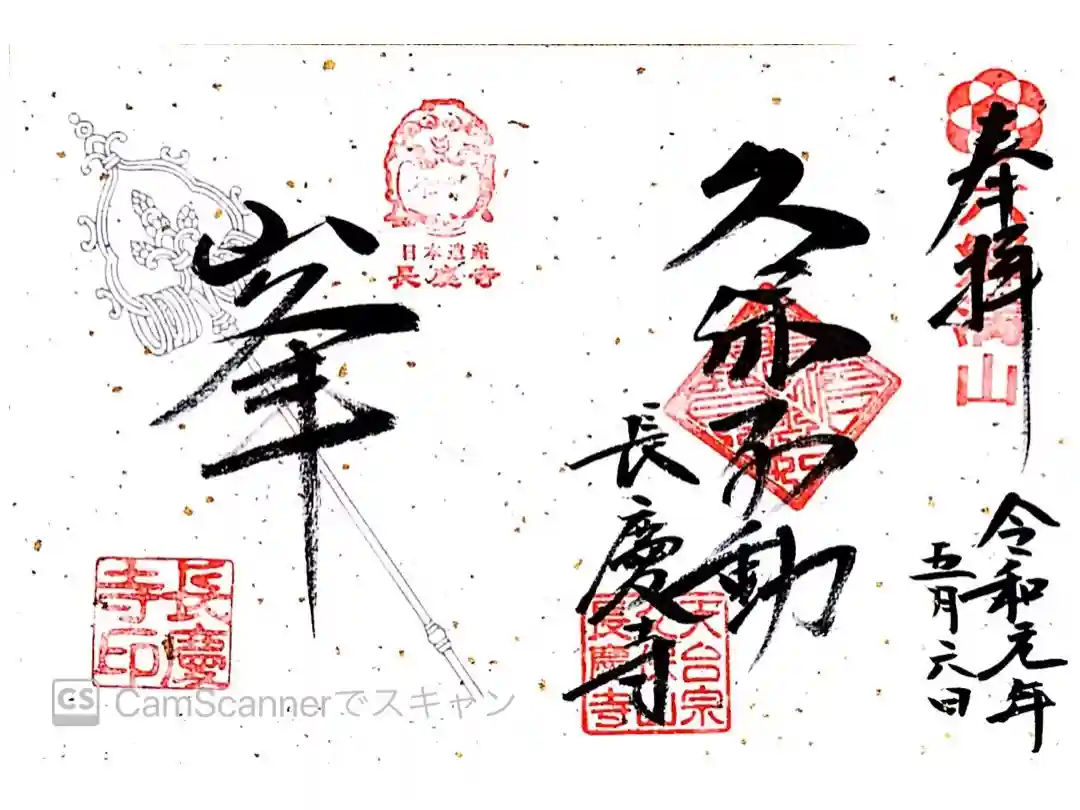 奉拝
六郷満山
令和元年
五月六日
不動
長慶寺
天台宗
長慶寺
日本遺産
長慶寺
峯
長慶寺印
CS CamScannerでスキャン